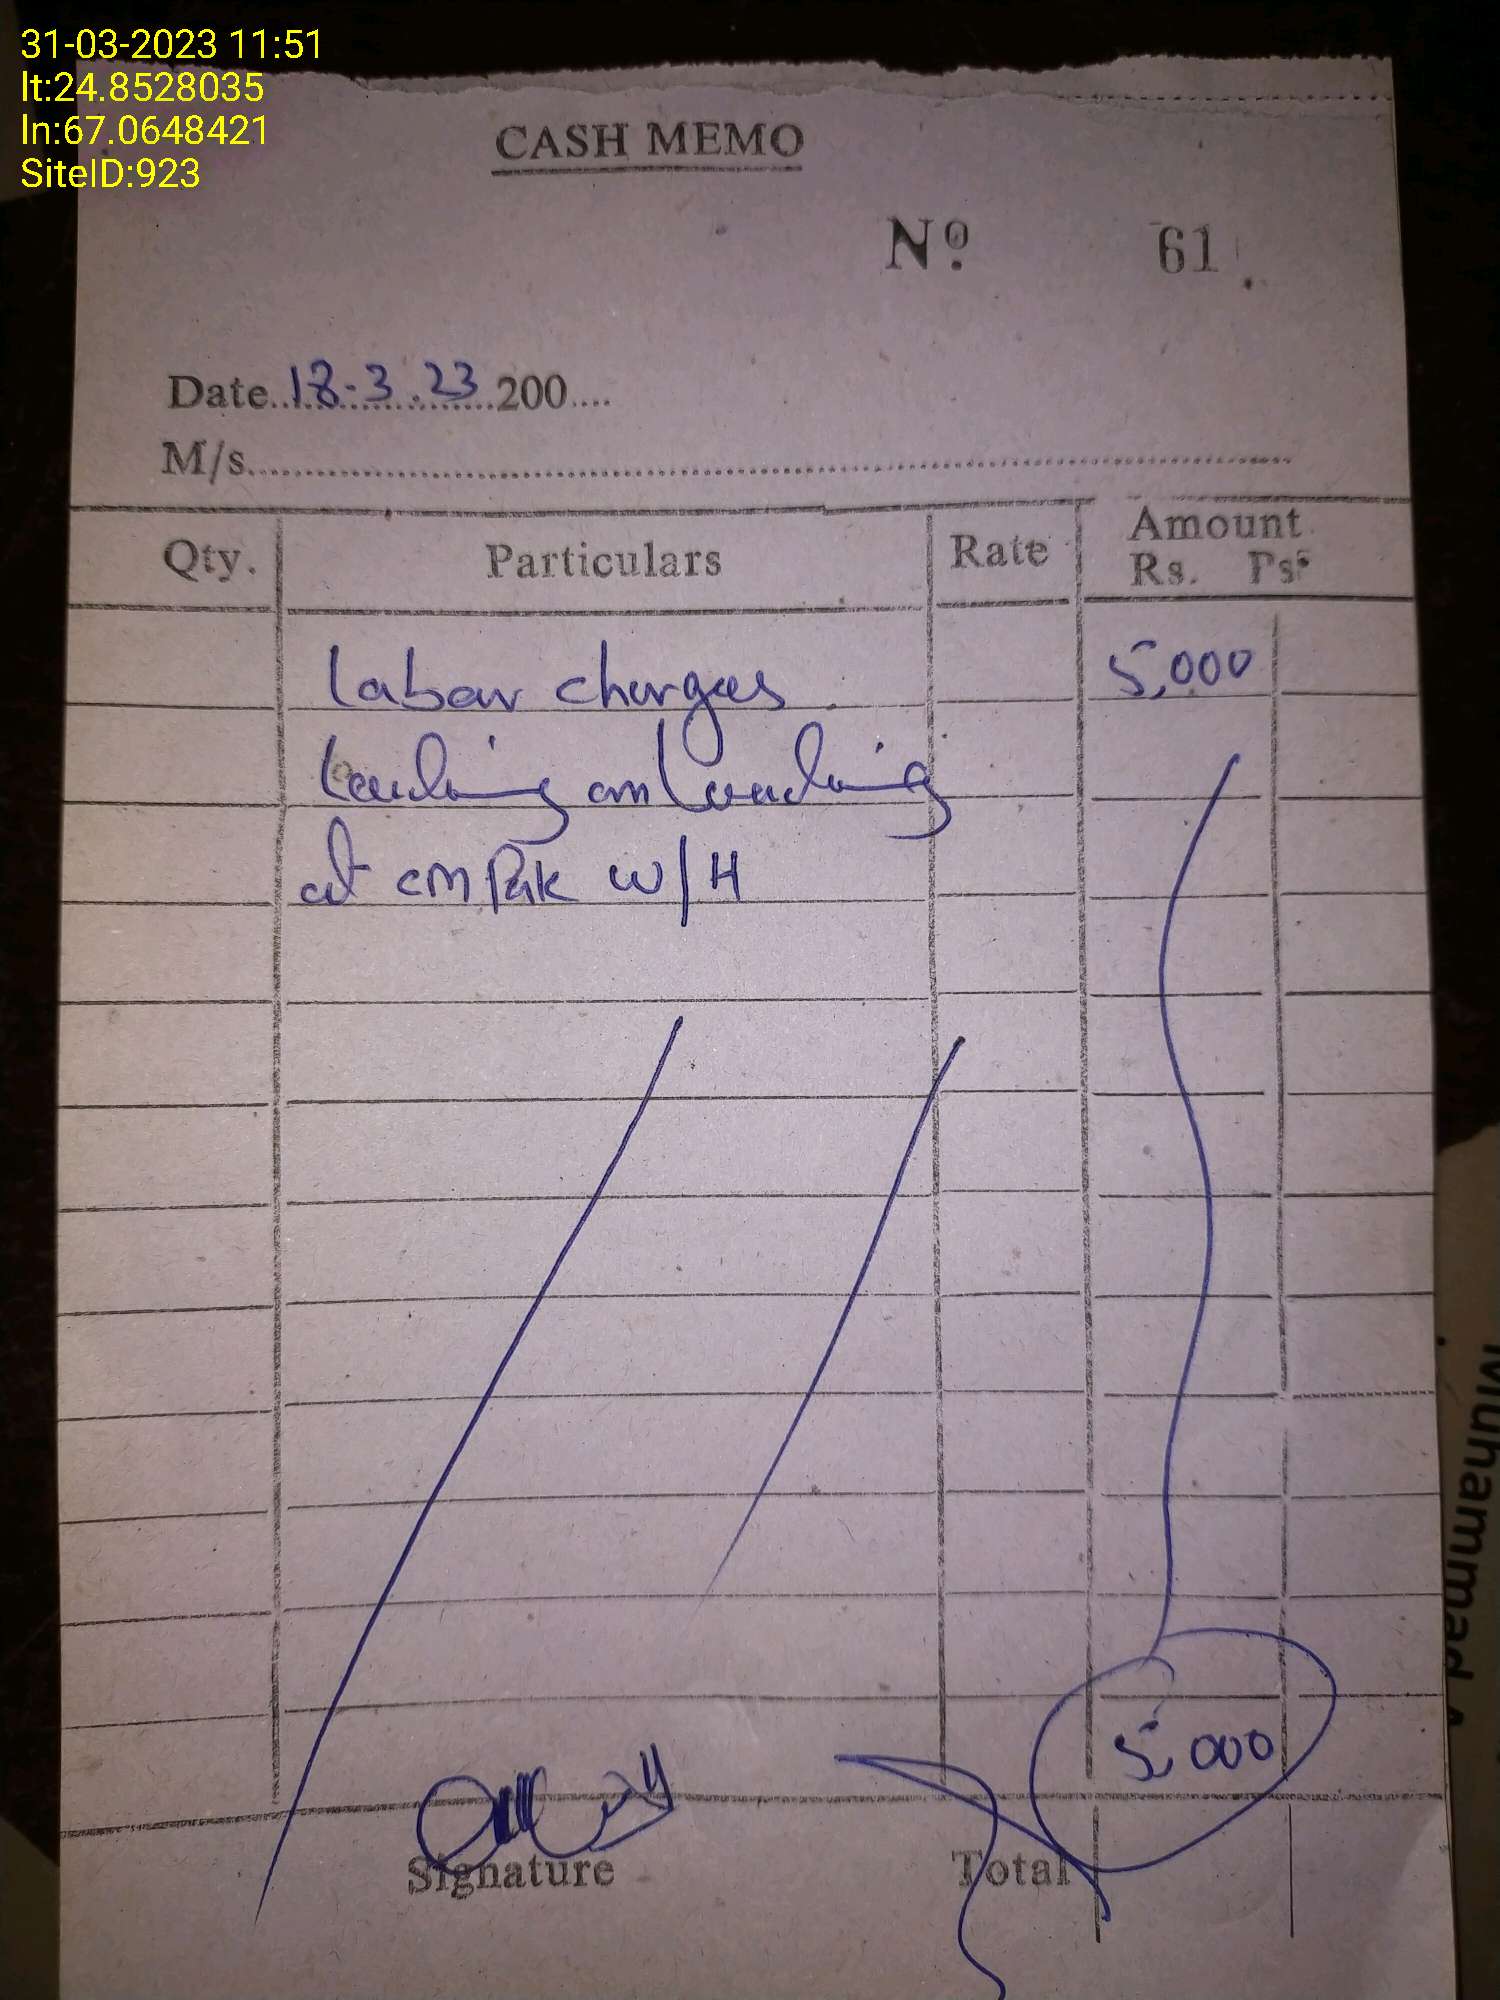 31-03-2023 11:51
lt:24.8528035
ln:67.0648421
SiteID:923
CASH MEMO
Nº. 61
Date..18-3.23..200....
M/s.
Qty. Particulars Rate Amount Rs. Ps.
Labour charges 5,000
Loading on Loading
at cm Pak W/H
5,000
Signature Total
Muhammad A